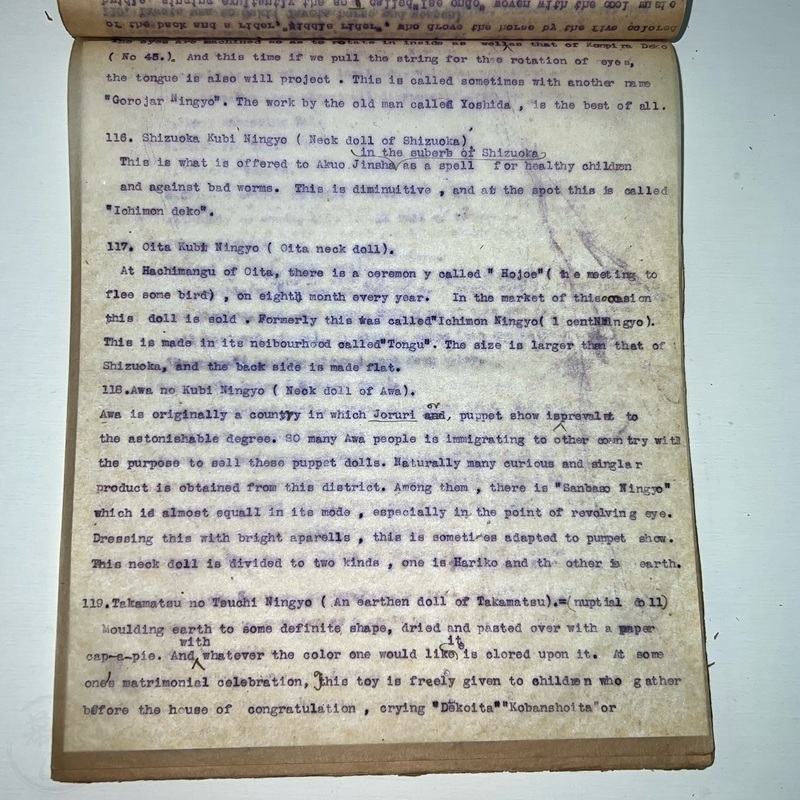 The eyes are machined so as to rotate in inside as well as that of Kompira Deko
( No 45.). And this time if we pull the string for the rotation of eyes,
the tongue is also will project . This is called sometimes with another name
"Gorojar Ningyo". The work by the old man called Yoshida , is the best of all.
116. Shizuoka Kubi Ningyo ( Neck doll of Shizuoka)
in the suberb of Shizuoka
This is what is offered to Akuo Jinsha as a spell for healthy children
and against bad worms. This is diminuitive , and at the spot this is called
"Ichimon deko".
117. Oita Kubi Ningyo ( Oita neck doll).
At Hachimangu of Oita, there is a ceremon y called " Hojoe"( the meeting to
flee some bird) , on eighth month every year. In the market of this occasion
this doll is sold . Formerly this was called"Ichimon Ningyo( 1 cent Ningyo).
This is made in its neibourhood called"Tongu". The size is larger than that of
Shizuoka, and the back side is made flat.
118.Awa no Kubi Ningyo ( Neck doll of Awa).
Awa is originally a country in which Joruri or, puppet show is prevalat to
the astonishable degree. SO many Awa people is immigrating to other country with
the purpose to sell these puppet dolls. Naturally many curious and singlar
product is obtained from this district. Among them , there is "Sanbaso Ningyo"
which is almost equall in its mode , especially in the point of revolving eye.
Dressing this with bright aparells , this is sometimes adapted to puppet show.
This neck doll is divided to two kinds , one is Hariko and the other is earth.
119.Takamatsu no Tsuchi Ningyo ( An earthen doll of Takamatsu).=(nuptial doll)
Moulding earth to some definite shape, dried and pasted over with a paper
with it,
cap-a-pie. And whatever the color one would like is clored upon it. At some
one's matrimonial celebration, this toy is freely given to children who gather
before the house of congratulation , crying "Dekoita""Kobanshoita"or